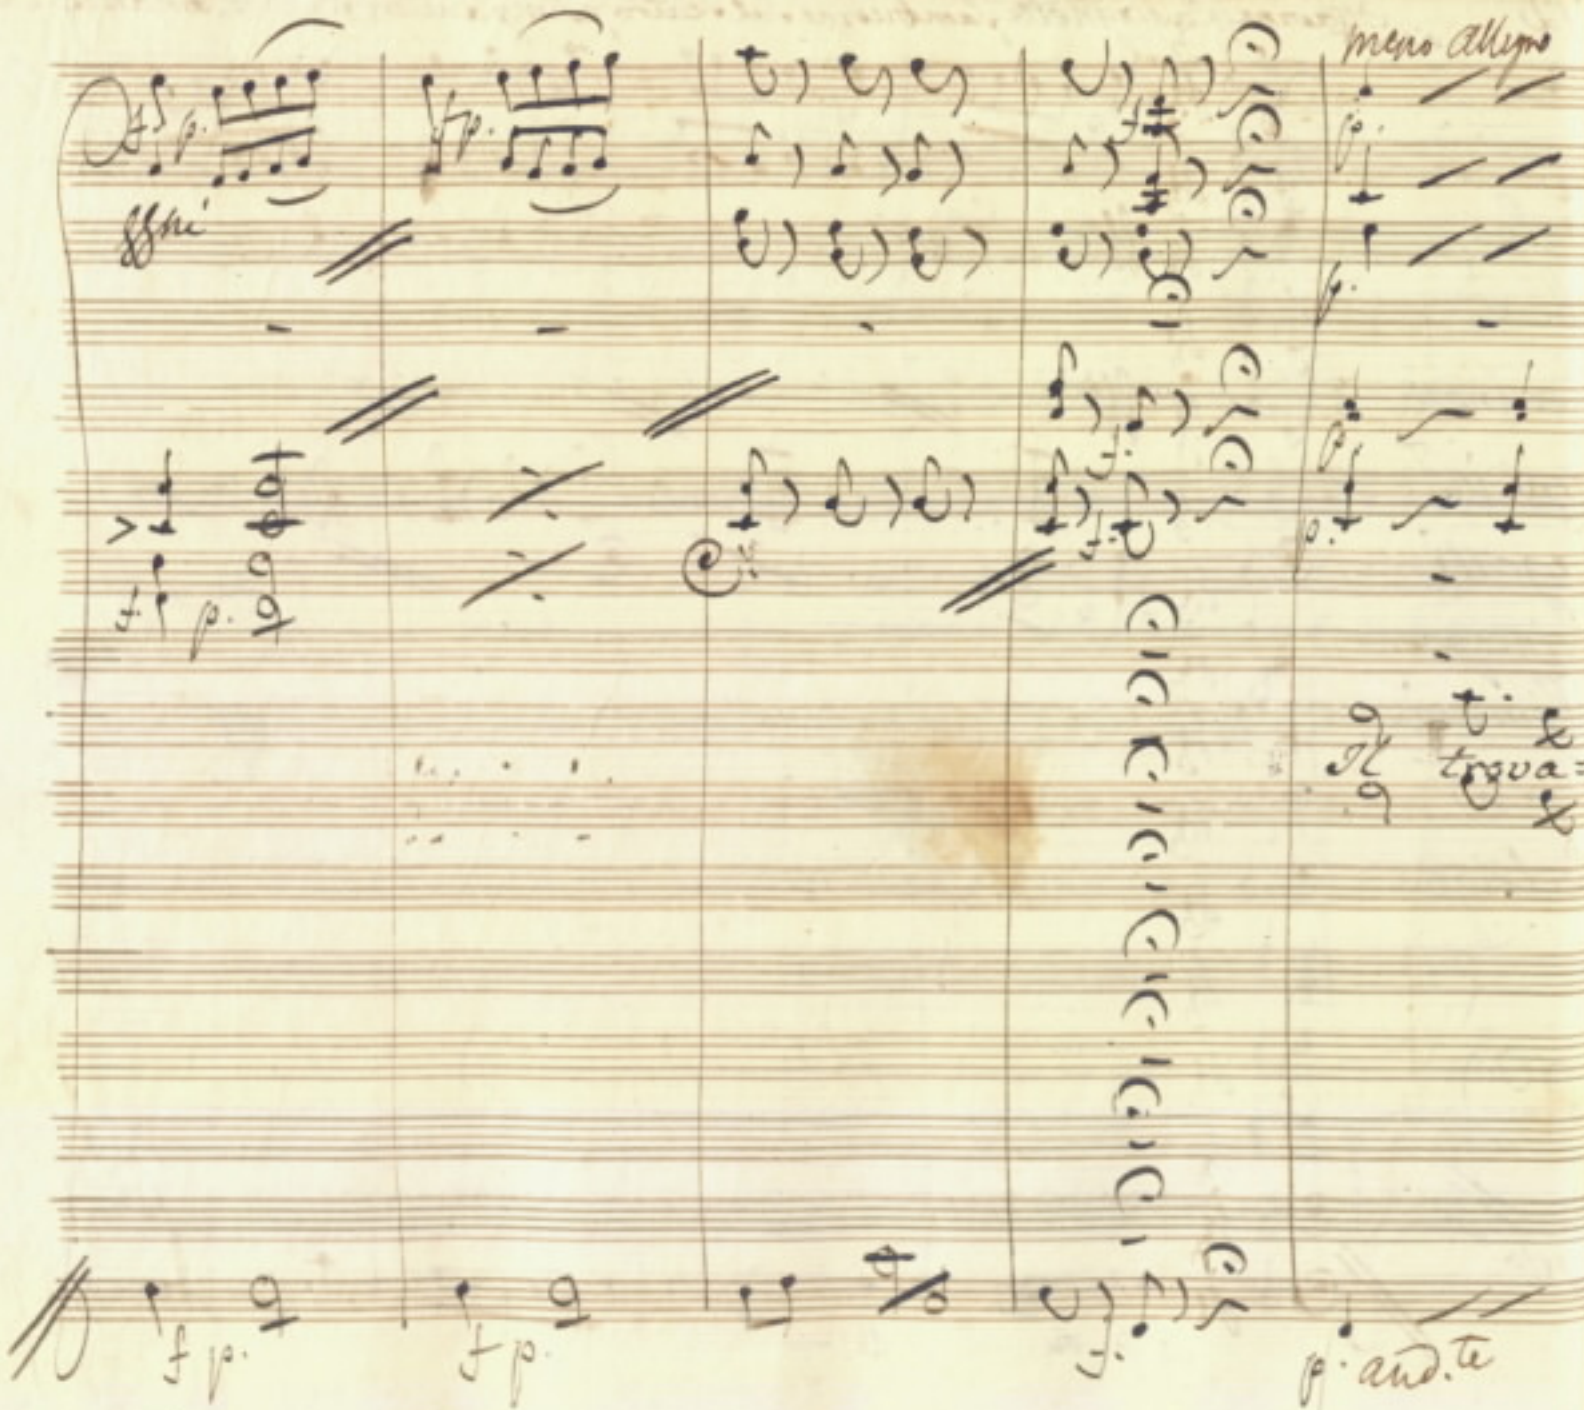 meno allegro
f. p. fp.
f.
p.
p.
f.
p.
f. p.
f.
p.
Il trova=
f p. f p. f. p. and.te